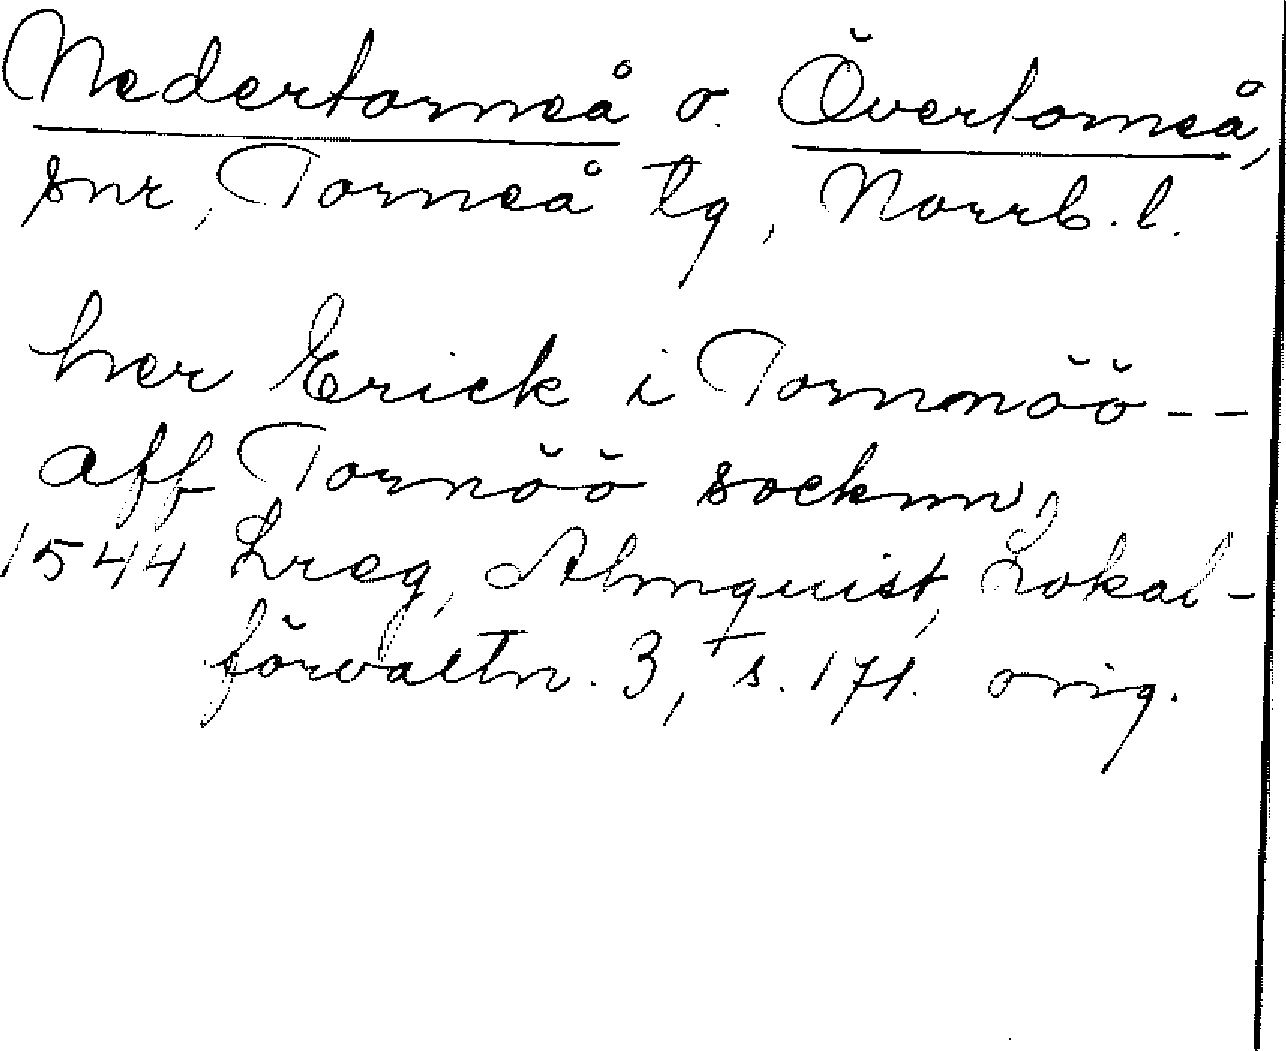 Nedertorneå o. Övertorneå,
snr, Torneå tg, Norrb. l.
her Erick i Tornnöö--
aff Tornöö socknn,
1544 Lreg, Almquist, Lokal-
förvaltn. 3, s. 171. orig.